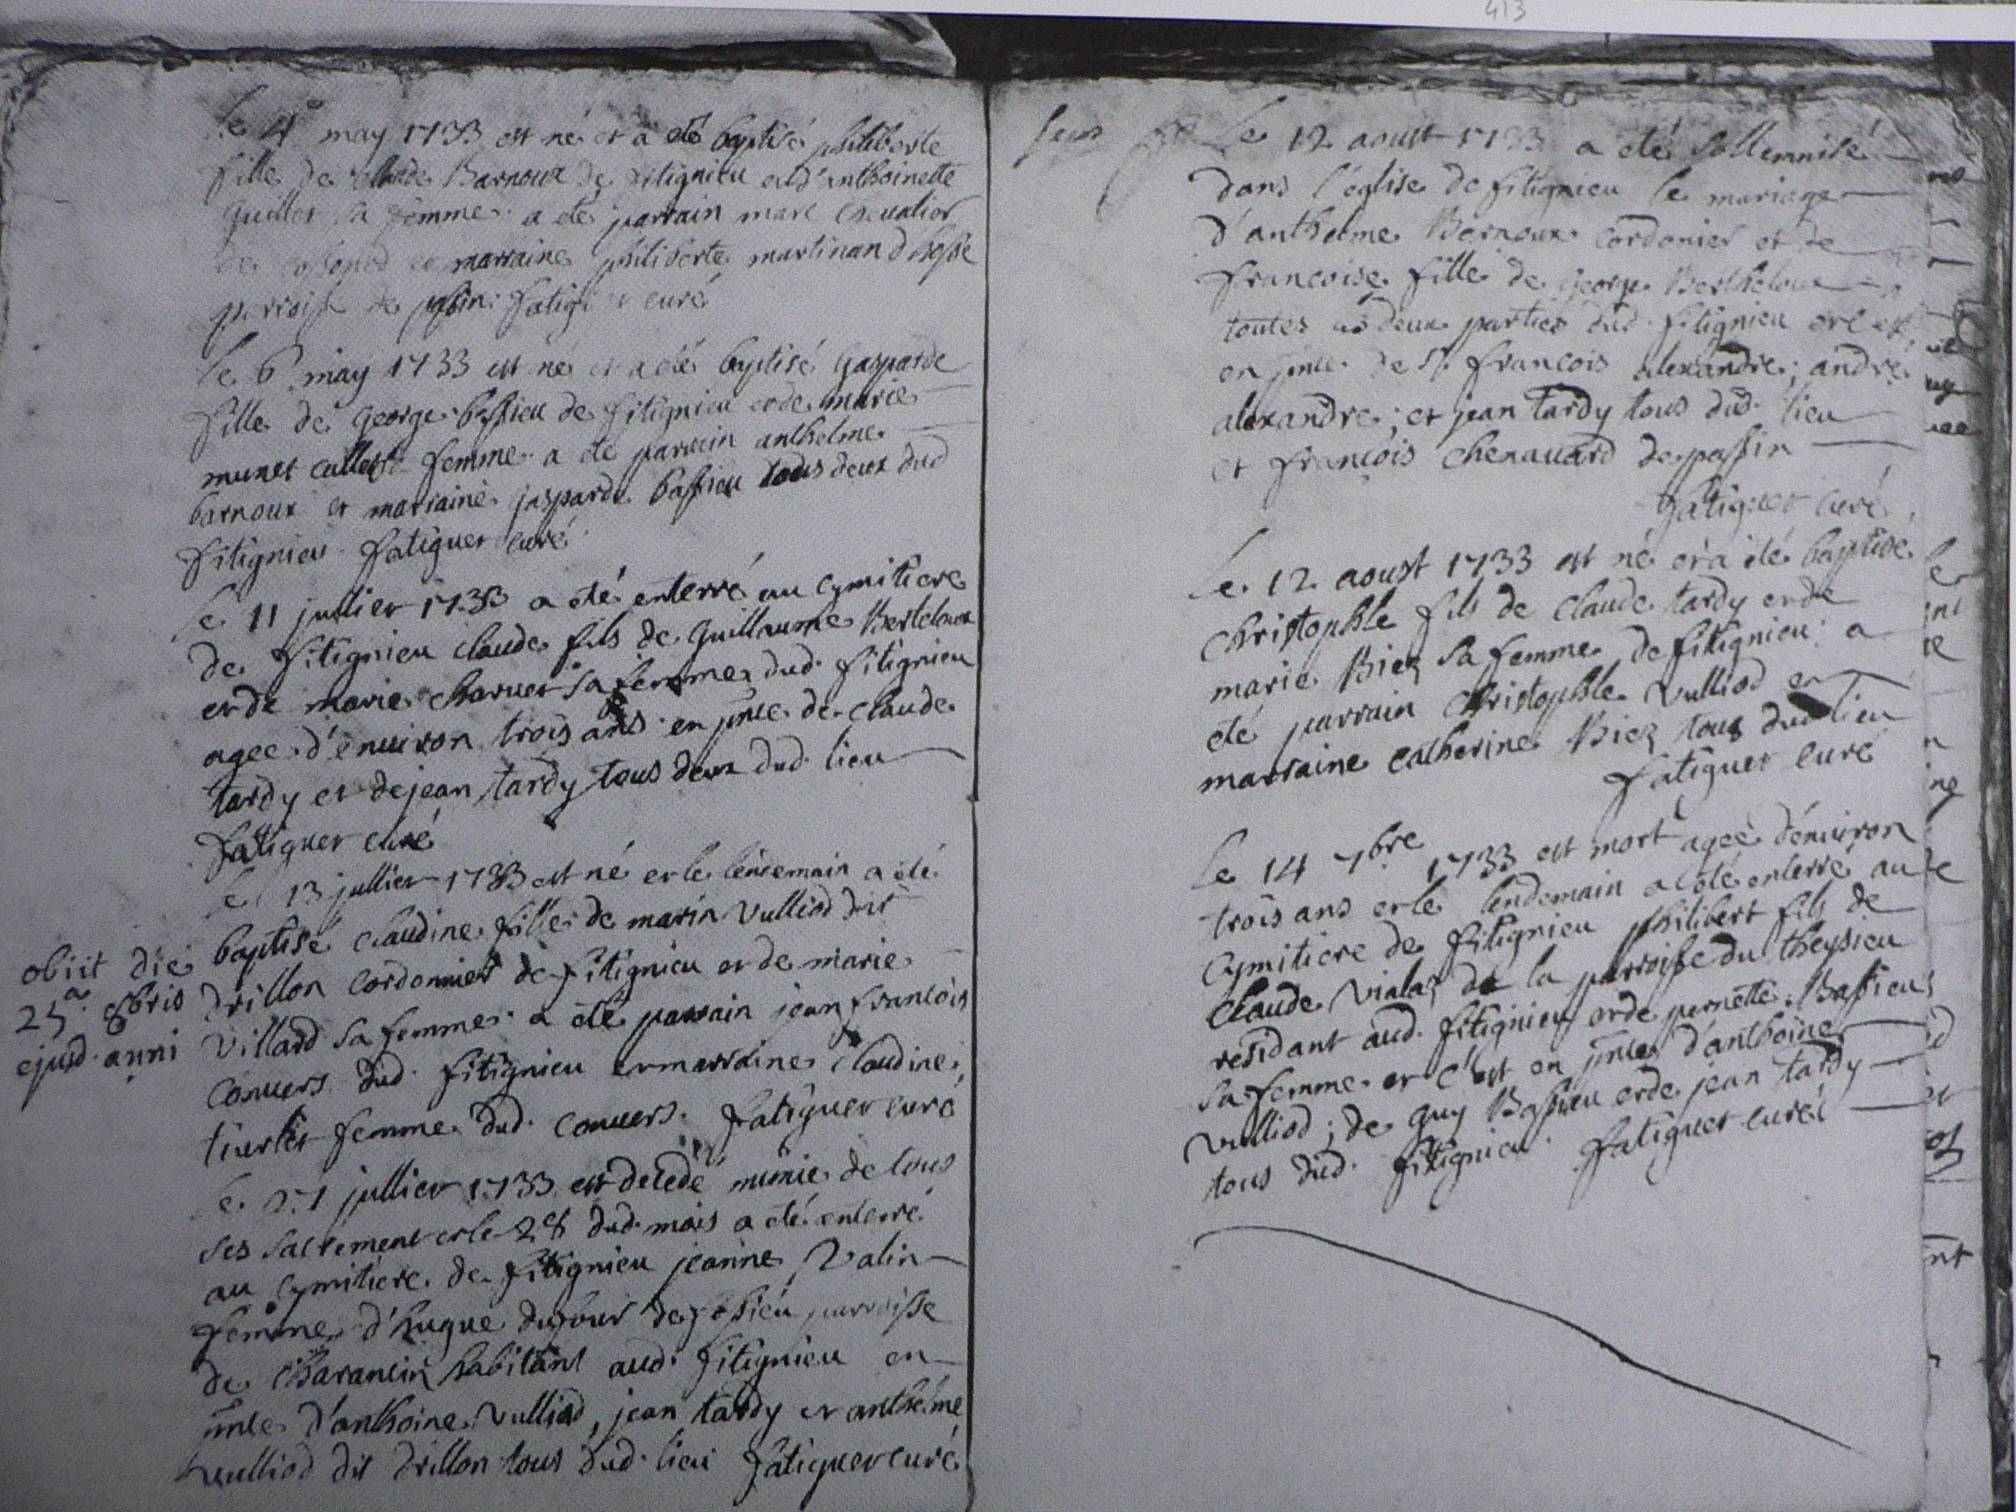 413
le 4e may 1733 est né et a eté baptisé philiberte
fille de claude Barnoux de fitignieu et d'anthoinette
Guillet sa femme a eté parrain marc chevalier
et marraine philiberte martinand
parroisse de curé
le 6e may 1733 est né et a eté baptisé gasparde
fille de george bassieu de fitignieu et de marie
munet femme a eté parrain anthelme
barnoux et marraine jasparde bassieu tous deux dud
fitignieu fatiguet curé
le 11 jullier 1733 a eté enterré au cymitiere
de fitignieu claude fils de guillaume Berteloux
et de marie charvet sa femme dud. fitignieu
agee d'environ trois ans en pnce de claude
tardy et de jean tardy tous deux dud. lieu
fatiguet curé
le 13 jullier 1733 est né et le lendemain a eté
baptisé claudine fille de marin vulliod dit
drillon cordonnier de fitignieu et de marie
villard sa femme a eté parrain jean françois
convers dud. fitignieu et marraine claudine
femme dud. convers. fatiguet curé
obiit die
25a 8bris
ejusd. anni
le 27 jullier 1733 est decedé munie de tous
ses sacrement et le 28 dud. mois a eté enterré
au cymitiere de fitignieu jeanine Valin
femme d'hugue dufour de parroisse
de charancin habitant aud. fitignieu en
pnce d'anthoine vulliod, jean tardy et anthelme
vulliod dit drillon tous dud. lieu fatiguet curé
le 12 aoust 1733 a eté sollemnisé
dans l'église de fitignieu le mariage
d'anthelme Bernoux cordonier et de
francoise fille de george Bertheloux
toutes deux parties dud. fitignieu et c'est
en pnce de Sr. francois alexandre; andré
alexandre; et jean tardy tous dud. lieu
et françois chenavard de passin
fatiguet curé
le 12 aoust 1733 est né et a eté baptisé
christophle fils de claude tardy et de
marie Biez sa femme de fitignieu: a
eté parrain christophle vulliod et
marraine catherine Biez tous dud lieu
fatiguet curé
le 14 7bre 1733 est mort ageé d'environ
trois ans et le lendemain a eté enterré au
cymitiere de fitignieu philibert fils de
claude vialaz de la parroisse du theysieu
residant aud. fitignieu et de pernette Bassieu
sa femme et c'est en pnce d'anthoine
vulliod; de guy Bassieu et de jean tardy
tous dud. fitignieu fatiguet curé